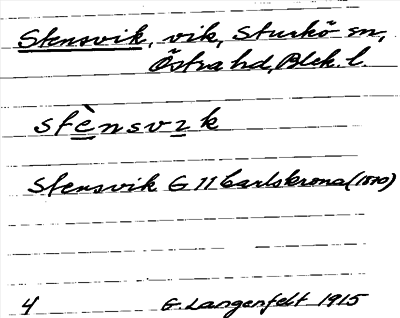 Stensvik, vik, Sturkö sn,
Östra hd, Blek. l.
stènsvik
Stensvik G 11 Carlskrona
4 G. Langenfelt 1915